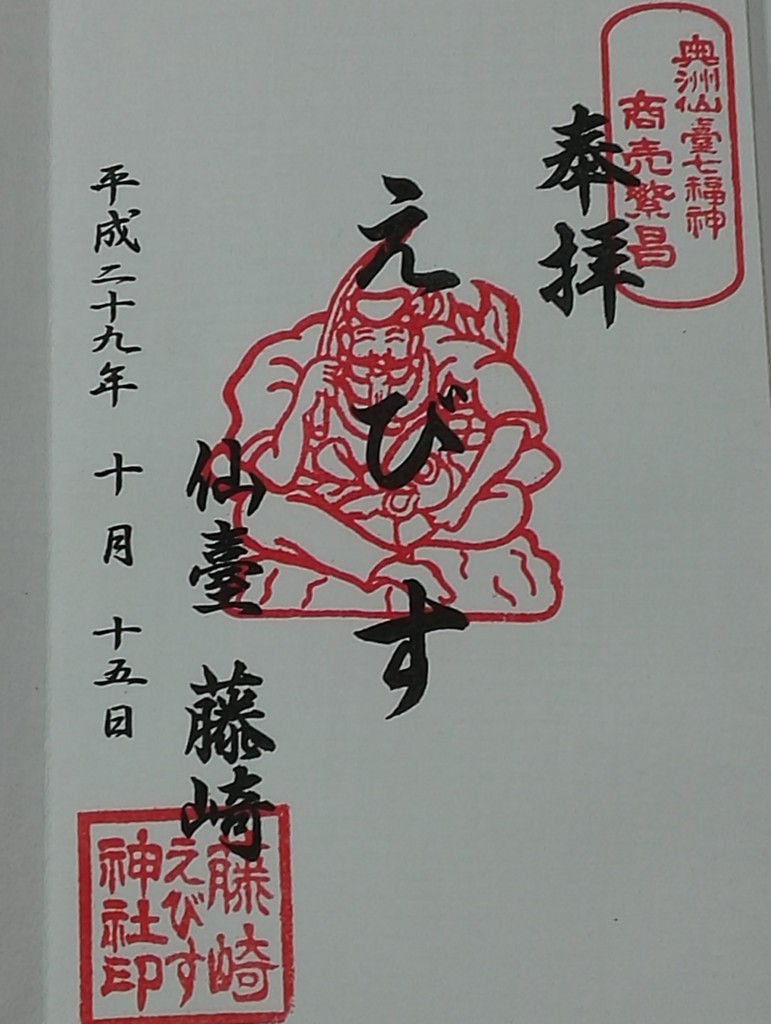 奥洲仙臺七福神
商売繁昌
奉拝
えびす
仙臺 藤崎
平成二十九年 十月 十五日
藤崎
えびす
神社印